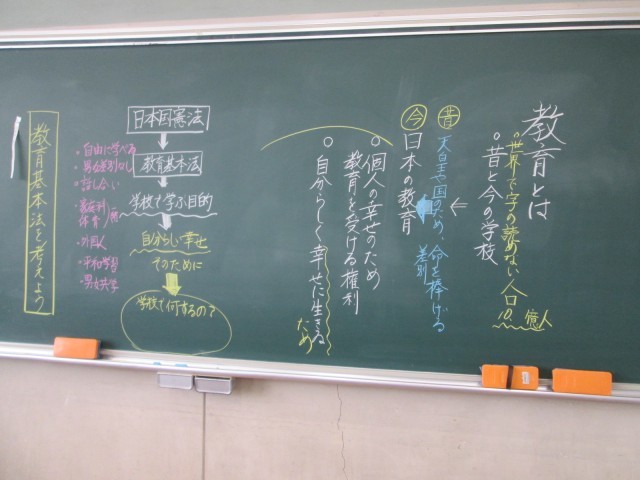 教育とは
世界で字の読めない人口
10億人
昔と今の学校
←
昔 天皇や国のため、命を捧げる
差別
今 日本の教育
個人の幸せのため
教育を受ける権利
自分らしく幸せに生きる
ため
日本国憲法
教育基本法
学校で学ぶ目的
自分らしい幸せ
そのために
学校で何するの?
・自由に学べる
・男女差別なし
・話し合い
・家庭科
体育
・外国人
・平和学習
・男女共学
教育基本法を考えよう